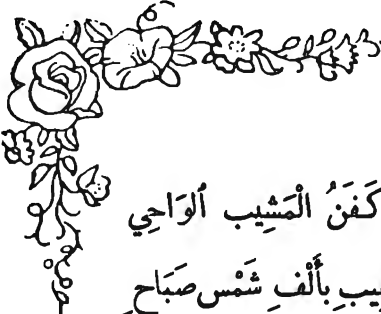 كَفَنُ الْمَشِيبِ الوَاحِي
بِأَلْفِ شَمْسِ صَبَاحِ